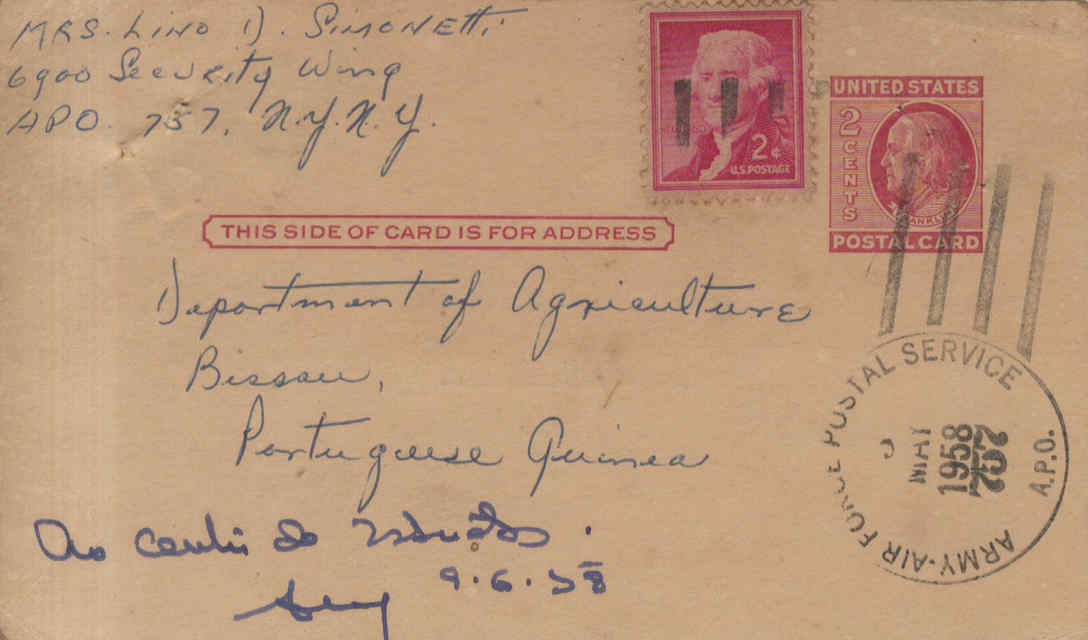 MRS. LINO D. SIMONETTI
6900 Security Wing
APO 757, N.Y. N.Y.
2¢
U.S. POSTAGE
UNITED STATES
2 CENTS
FRANKLIN
POSTAL CARD
THIS SIDE OF CARD IS FOR ADDRESS
Department of Agriculture
Bissau,
Portuguese Guinea
ARMY-AIR FORCE POSTAL SERVICE
MAY
1958
757
A.P.O.
Ao centro de Estudos.
9.6.58